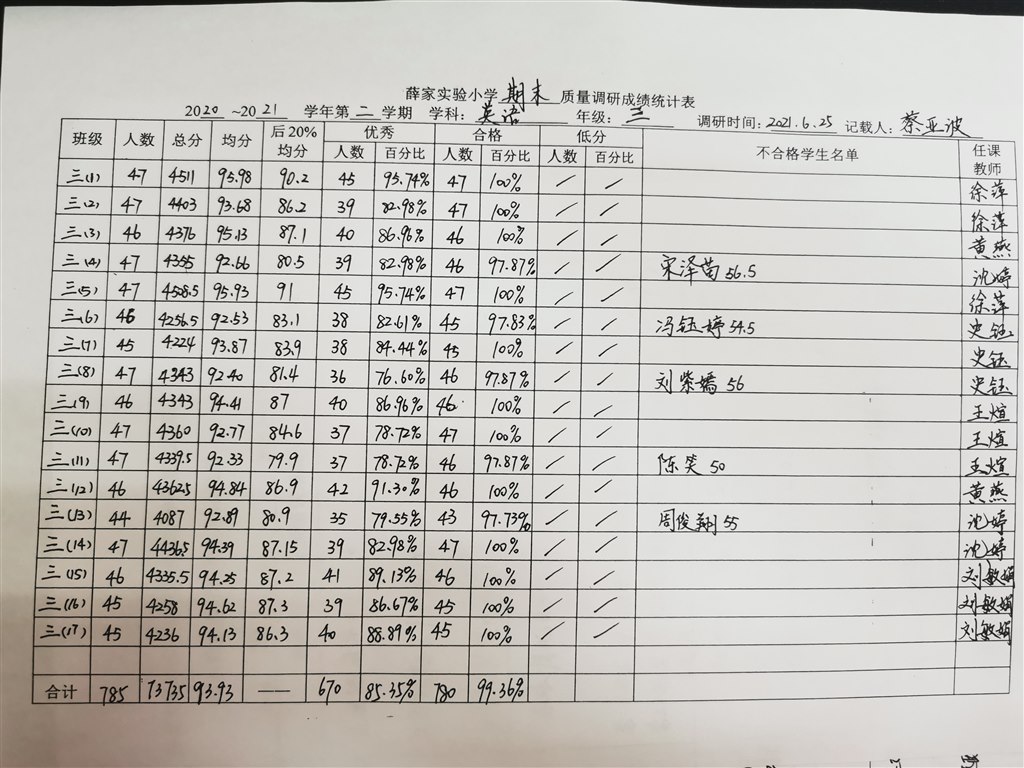 薛家实验小学 期末 质量调研成绩统计表
2020 ~2021 学年第 二 学期 学科: 英语 年级: 三 调研时间: 2021.6.25 记载人: 蔡亚波
班级 人数 总分 均分 后20%均分 优秀 人数 百分比 合格 人数 百分比 低分 人数 百分比 不合格学生名单 任课教师
三(1) 47 4511 95.98 90.2 45 95.74% 47 100% / / 徐萍
三(2) 47 4403 93.68 86.2 39 82.98% 47 100% / / 徐萍
三(3) 46 4376 95.13 87.1 40 86.96% 46 100% / / 黄燕
三(4) 47 4355 92.66 80.5 39 82.98% 46 97.87% / / 宋泽苗 56.5 沈婷
三(5) 47 4508.5 95.93 91 45 95.74% 47 100% / / 徐萍
三(6) 46 4256.5 92.53 83.1 38 82.61% 45 97.83% / / 冯钰婷 54.5 史钰
三(7) 45 4224 93.87 83.9 38 84.44% 45 100% / / 史钰
三(8) 47 4343 92.40 81.4 36 76.60% 46 97.87% / / 刘紫嫣 56 史钰
三(9) 46 4343 94.41 87 40 86.96% 46 100% / / 王煊
三(10) 47 4360 92.77 84.6 37 78.72% 47 100% / / 王煊
三(11) 47 4339.5 92.33 79.9 37 78.72% 46 97.87% / / 陈笑 50 王煊
三(12) 46 4362.5 94.84 86.9 42 91.30% 46 100% / / 黄燕
三(13) 44 4087 92.89 80.9 35 79.55% 43 97.73% / / 周俊翔 55 沈婷
三(14) 47 4436.5 94.39 87.15 39 82.98% 47 100% / / 沈婷
三(15) 46 4335.5 94.25 87.2 41 89.13% 46 100% / / 刘敏娟
三(16) 45 4258 94.62 87.3 39 86.67% 45 100% / / 刘敏娟
三(17) 45 4236 94.13 86.3 40 88.89% 45 100% / / 刘敏娟
合计 785 73735 93.93 —— 670 85.35% 780 99.36%